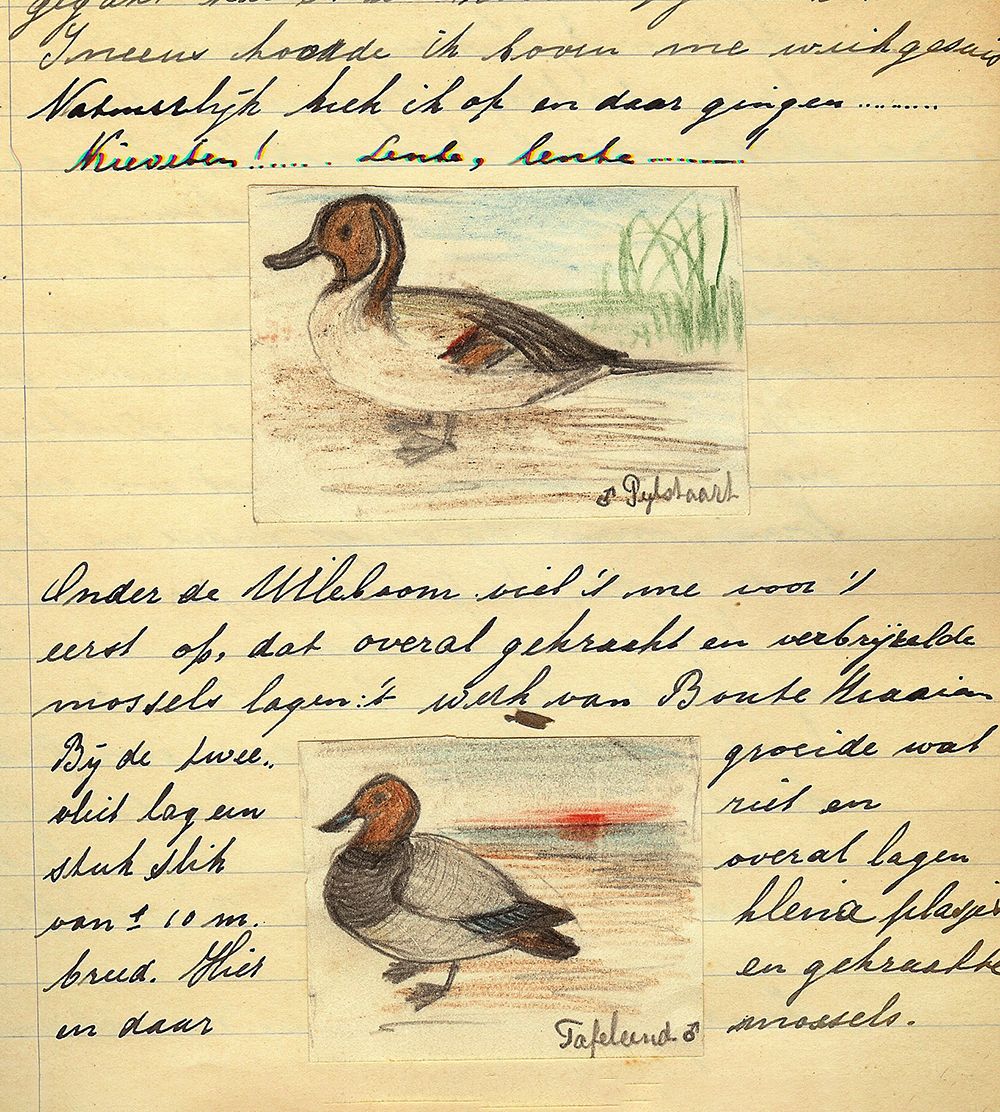 Ineens hoorde ik boven me wiekgesuis
Natuurlijk keek ik op en daar gingen .........
Kievieten!..... Lente, lente ........!
♂ Pylstaart
Onder de Uileboom viel 't me voor 't
eerst op, dat overal gekraakt en verbrijzelde
mossels lagen: 't werk van Bonte Kraaien
Bij de twee..
vliet lag een
stuk slik
van ± 10 m.
breed. Hier
en daar
groeide wat
riet en
overal lagen
kleine plasjes
en gekraakte
mossels.
Tafeleend ♂